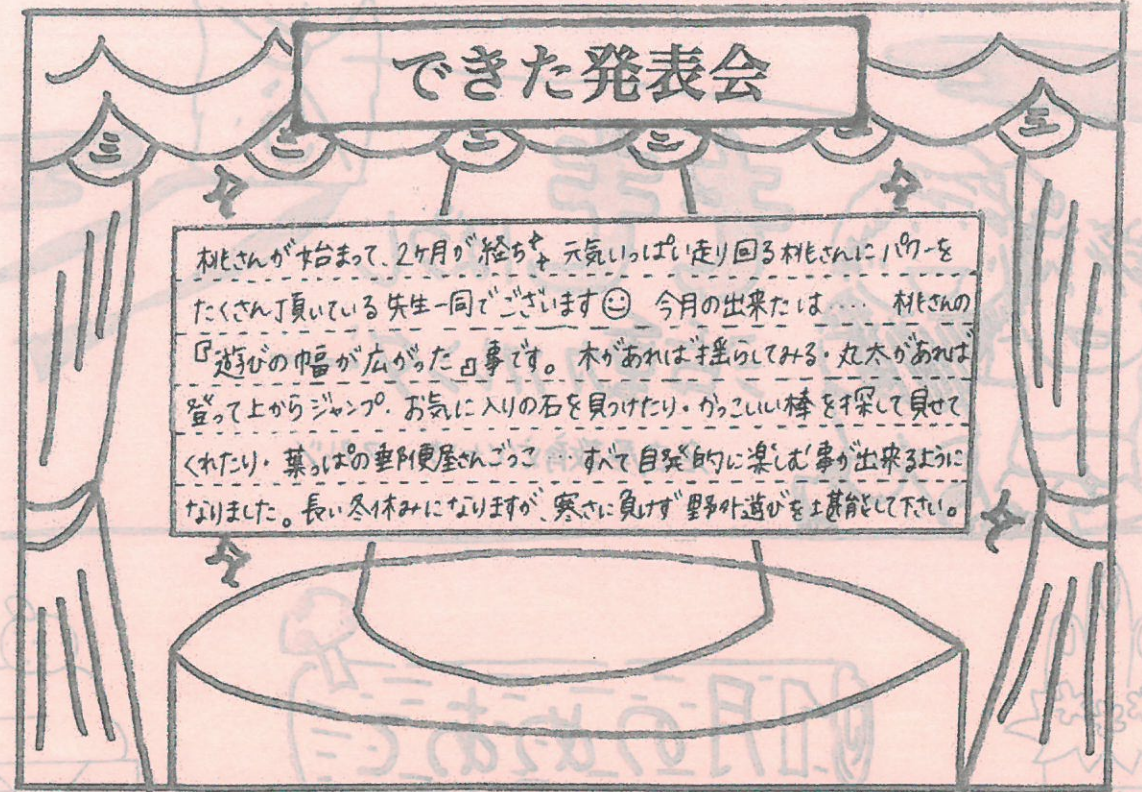 できた発表会
桃さんが始まって、2ヶ月が経ち 元気いっぱい走り回る桃さんにパワーを
たくさん頂いている先生一同でございます☺ 今月の出来たは‥‥ 桃さんの
『遊びの幅が広がった』事です。 木があれば揺らしてみる・丸太があれば
登って上からジャンプ・お気に入りの石を見つけたり・かっこいい棒を探して見せて
くれたり・葉っぱの郵便屋さんごっこ…すべて自発的に楽しむ事が出来るように
なりました。長い冬休みになりますが、寒さに負けず野外遊びを堪能して下さい。
1月のめあて